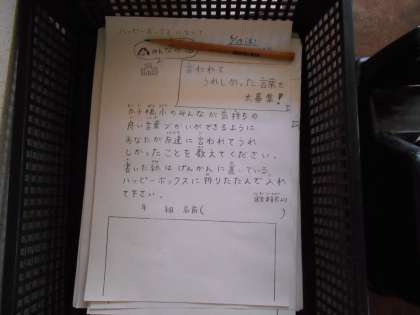 ハッピーボックスに入れて
みんなが
言われて
うれしかった言葉を
大募集!
小のみんなが気持ちの
良い言葉づかいができるように
あなたが友達に言われてうれ
しかったことを教えてください。
書いた紙はげんかんに置いている
ハッピーボックスに折りたたんで入れ
て下さい。
年 組 名前( )